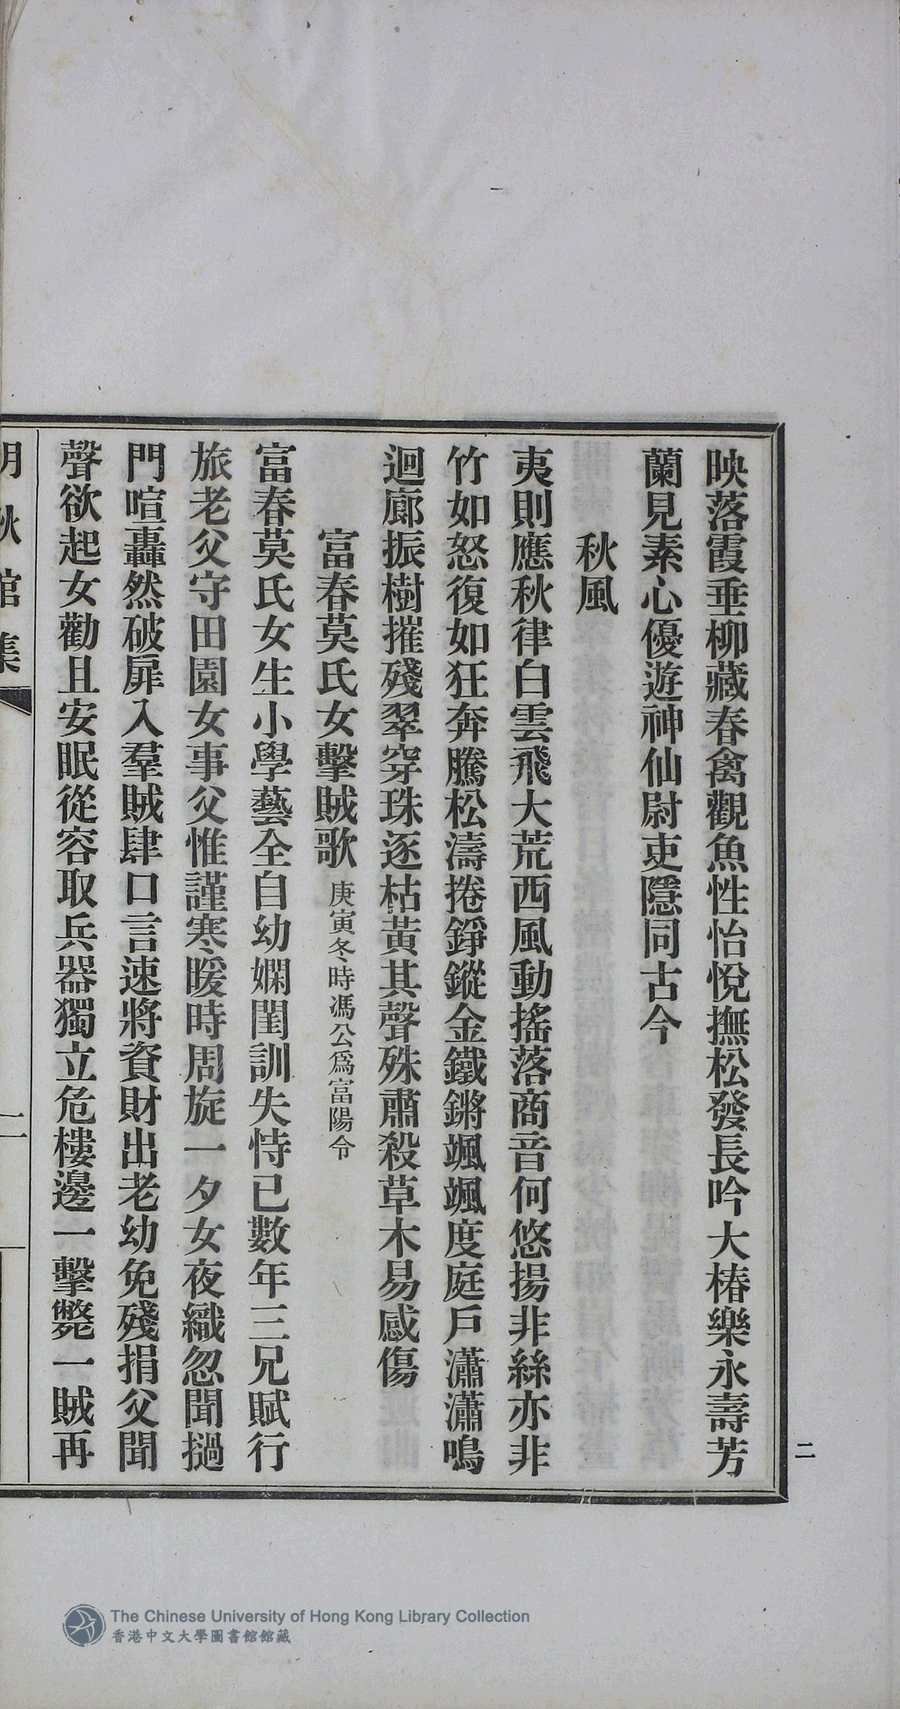 映落霞垂柳藏春禽觀魚性怡悅撫松發長吟大椿樂永壽芳
蘭見素心優遊神仙尉吏隱同古今
秋風
夷則應秋律白雲飛大荒西風動搖落商音何悠揚非絲亦非
竹如怒復如狂奔騰松濤捲錚鏦金鐵鏘颯颯度庭戶瀟瀟鳴
迴廊振樹摧殘翠穿珠逐枯黃其聲殊肅殺草木易感傷
富春莫氏女擊賊歌 庚寅冬時馮公爲富陽令
富春莫氏女生小學藝全自幼嫻閨訓失恃已數年三兄賦行
旅老父守田園女事父惟謹寒暖時周旋一夕女夜織忽聞撾
門喧轟然破扉入羣賊肆口言速將資財出老幼免殘捐父聞
聲欲起女勸且安眠從容取兵器獨立危樓邊一擊斃一賊再
秋館集
二
二
The Chinese University of Hong Kong Library Collection
香港中文大學圖書館館藏